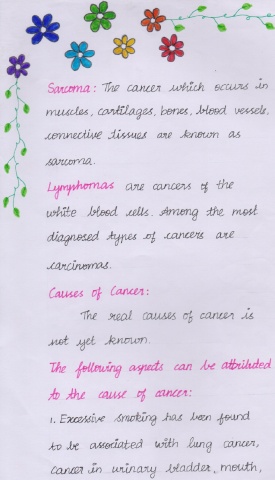 Sarcoma: The cancer which occurs in
muscles, cartilages, bones, blood vessels,
connective tissues are known as
sarcoma.
Lymphomas are cancers of the
white blood cells. Among the most
diagnosed types of cancers are
carcinomas.
Causes of Cancer:
The real causes of cancer is
not yet known.
The following aspects can be attributed
to the cause of cancer:
1. Excessive smoking has been found
to be associated with lung cancer,
cancer in urinary bladder, mouth,